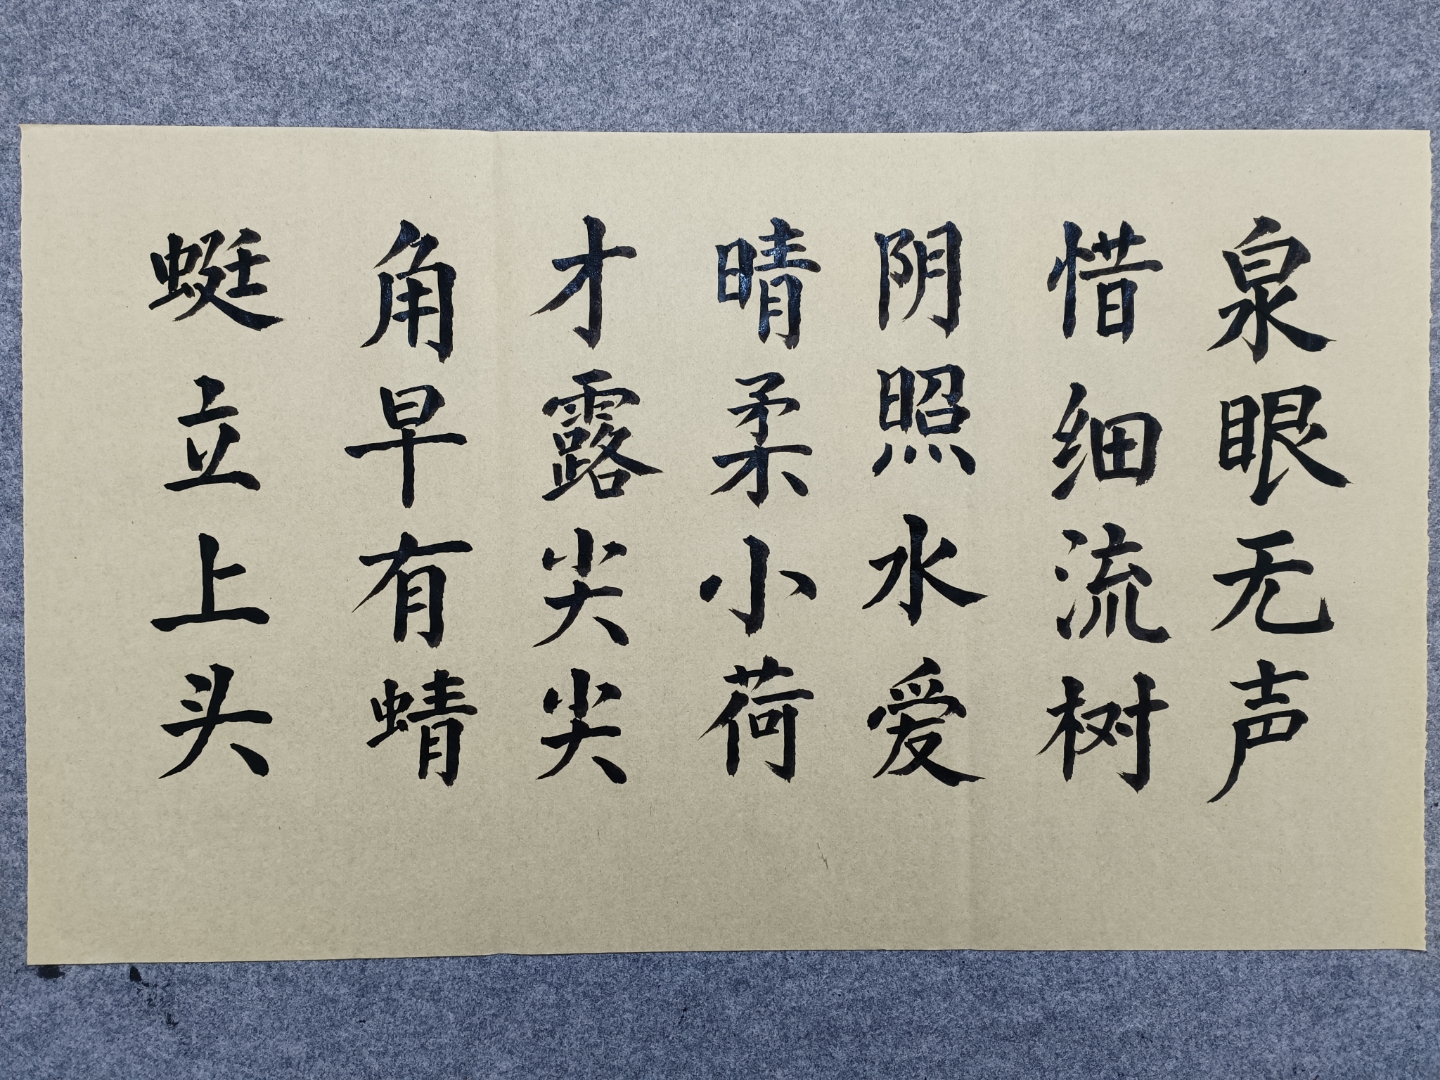 泉眼无声
惜细流树
阴照水爱
晴柔小荷
才露尖尖
角早有蜻
蜓立上头